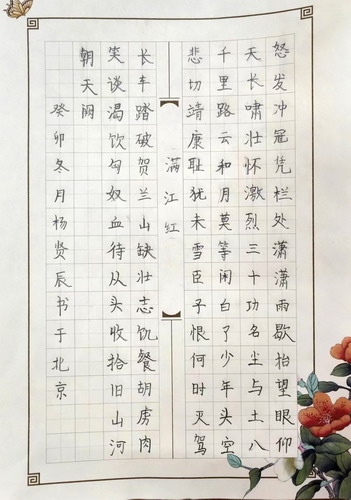 怒发冲冠凭栏处潇潇雨歇抬望眼仰
天长啸壮怀激烈三十功名尘与土八
千里路云和月莫等闲白了少年头空
悲切靖康耻犹未雪臣子恨何时灭驾
满江红
长车踏破贺兰山缺壮志饥餐胡虏肉
笑谈渴饮匈奴血待从头收拾旧山河
朝天阙
癸卯冬月杨贤辰书于北京